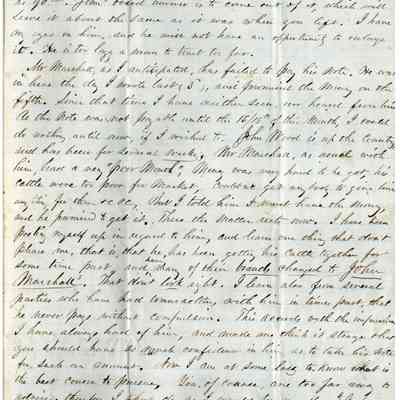 as yo John Wood's manner is to come out of it, which will
leave it about the same as it was when you left. I have
my eyes on him, and he will not have an opportunity to enlarge
it. He is too lazy a man to trust too far.
Mr Marshall, as I anticipated, has failed to pay his note. He was
in here the day I wrote last (3rd), and promised the Money on the
fifth. Since that time I have neither seen nor heard from him
As the Note was not payable until the 12/15th of this Month, I could
do nothing until now, if I wished to. John Wood is up the country
and has been for several weeks. Mr Marshall, as usual with
him, had a very "poor Mouth", Money was very hard to be got, his
cattle were too poor for Market, Couldn't get any body to give him
any thing for them &c &c. But I told him I must have the Money
and he promised to get it. There the Matter rests now. I have been
posting myself up in regard to him, and learn one thing that don't
please me, that is, that he has been getting his cattle together for
some time past, and having many of their brands changed to John
Marshall. That don't look right. I learn also from several
parties who have had transactions with him in times past, that
he never pays without compulsion. This accords with the impression
I have always had of him, and made me think it strange that
you should have so much confidence in him as to take his note
for such an amount. Now I am at some loss to know what is
the best course to pursue. You, of course, are too far away to